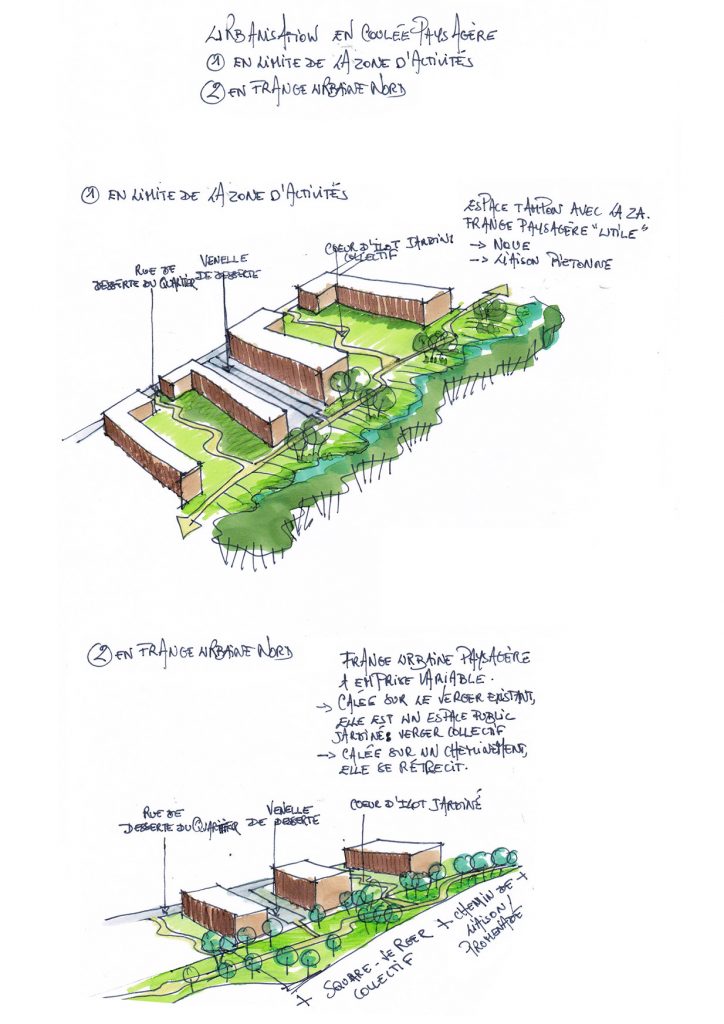 URBANISATION EN COULÉE PAYSAGÈRE
① EN LIMITE DE LA ZONE D'ACTIVITÉS
② EN FRANGE URBAINE NORD
① EN LIMITE DE LA ZONE D'ACTIVITÉS
ESPACE TAMPON AVEC LA ZA.
FRANGE PAYSAGÈRE "UTILE"
→ NOUE
→ LIAISON PIÉTONNE
RUE DE
DESSERTE DU QUARTIER
VENELLE
DE DESSERTE
COEUR D'ILOT JARDINS
COLLECTIF
② EN FRANGE URBAINE NORD
FRANGE URBAINE PAYSAGÈRE
A EMPRISE VARIABLE.
→ CALÉE SUR LE VERGER EXISTANT,
ELLE EST UN ESPACE PUBLIC
JARDINÉ: VERGER COLLECTIF
→ CALÉE SUR UN CHEMINEMENT,
ELLE SE RÉTRECIT.
RUE DE
DESSERTE DU QUARTIER
VENELLE
DE DESSERTE
COEUR D'ILOT JARDINÉ
SQUARE-VERGER
COLLECTIF
CHEMIN DE
LIAISON/
PROMENADE